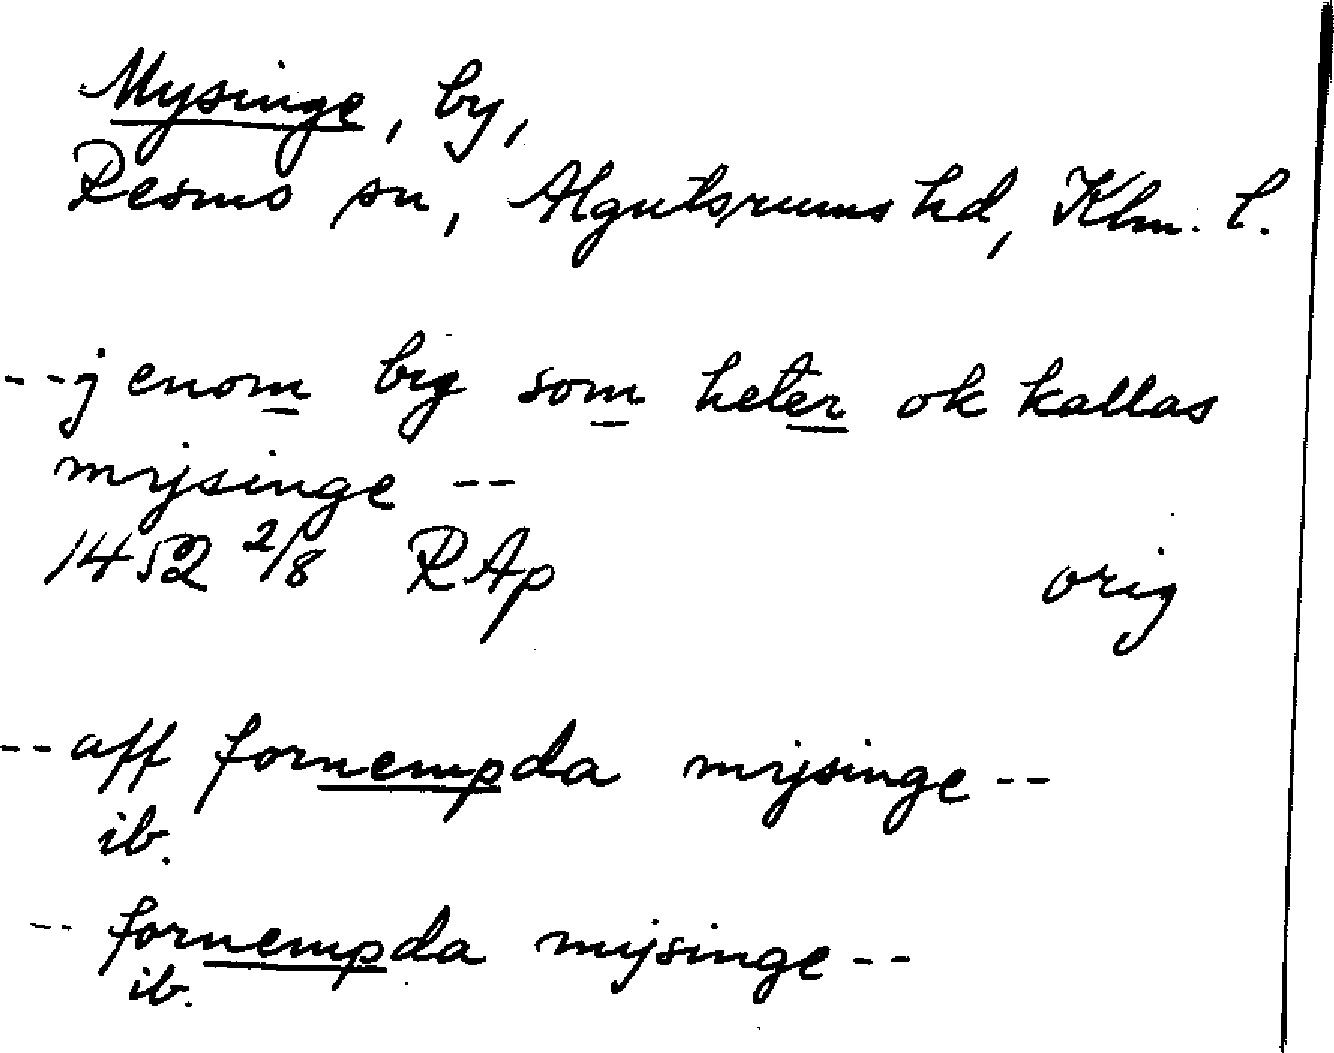 Mysinge, by,
Resmo sn, Algutsrums hd, Klm. l.
--j enom by som heter ok kallas
mysinge --
1452 2/8 RAp orig
-- aff fornempda mysinge --
ib.
-- fornempda mysinge --
ib.